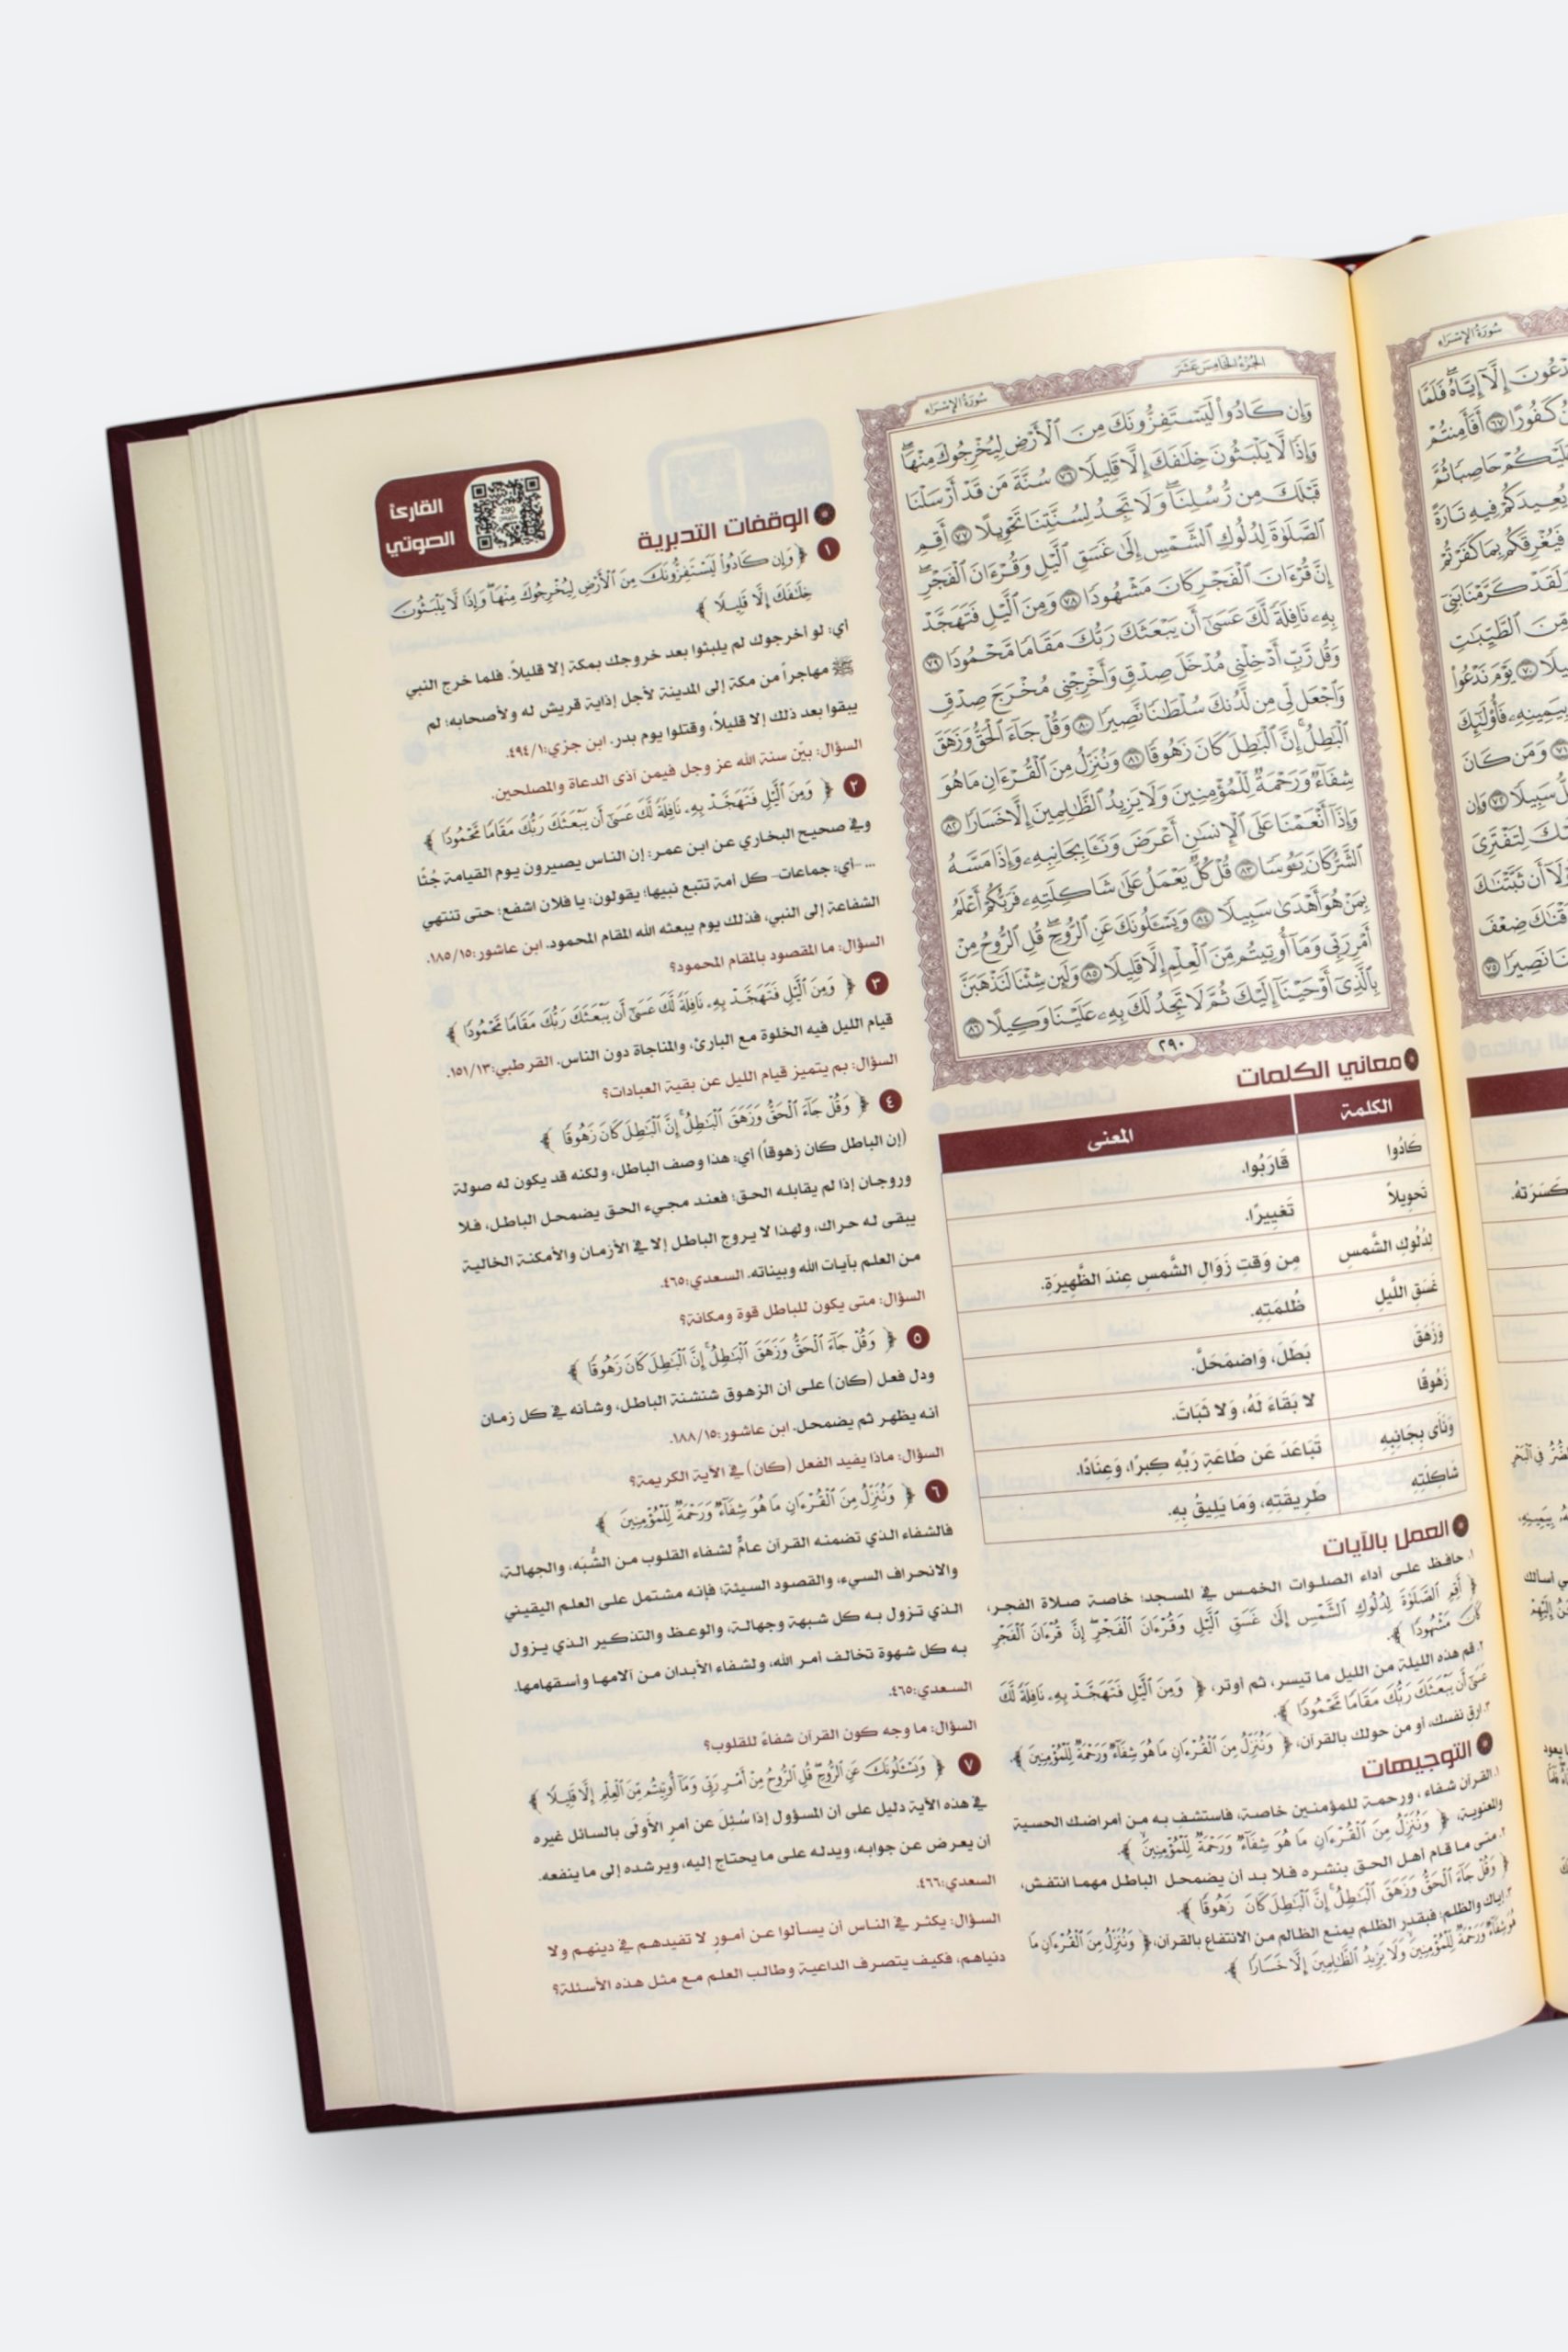 سُورَةُ الإِسْرَاءِ
الجُزْءُ الخَامِسَ عَشَرَ
سُورَةُ الإِسْرَاءِ
وَإِن كَادُوا۟ لَيَسْتَفِزُّونَكَ مِنَ ٱلْأَرْضِ لِيُخْرِجُوكَ مِنْهَا ۖ
وَإِذًا لَّا يَلْبَثُونَ خِلَٰفَكَ إِلَّا قَلِيلًا ٧٦ سُنَّةَ مَن قَدْ أَرْسَلْنَا
قَبْلَكَ مِن رُّسُلِنَا ۖ وَلَا تَجِدُ لِسُنَّتِنَا تَحْوِيلًا ٧٧ أَقِمِ
ٱلصَّلَوٰةَ لِدُلُوكِ ٱلشَّمْسِ إِلَىٰ غَسَقِ ٱلَّيْلِ وَقُرْءَانَ ٱلْفَجْرِ ۖ
إِنَّ قُرْءَانَ ٱلْفَجْرِ كَانَ مَشْهُودًا ٧٨ وَمِنَ ٱلَّيْلِ فَتَهَجَّدْ
بِهِۦ نَافِلَةً لَّكَ عَسَىٰٓ أَن يَبْعَثَكَ رَبُّكَ مَقَامًا مَّحْمُودًا ٧٩
وَقُل رَّبِّ أَدْخِلْنِى مُدْخَلَ صِدْقٍ وَأَخْرِجْنِى مُخْرَجَ صِدْقٍ
وَٱجْعَل لِّى مِن لَّدُنكَ سُلْطَٰنًا نَّصِيرًا ٨٠ وَقُلْ جَآءَ ٱلْحَقُّ وَزَهَقَ
ٱلْبَٰطِلُ ۚ إِنَّ ٱلْبَٰطِلَ كَانَ زَهُوقًا ٨١ وَنُنَزِّلُ مِنَ ٱلْقُرْءَانِ مَا هُوَ
شِفَآءٌ وَرَحْمَةٌ لِّلْمُؤْمِنِينَ وَلَا يَزِيدُ ٱلظَّٰلِمِينَ إِلَّا خَسَارًا ٨٢
وَإِذَآ أَنْعَمْنَا عَلَى ٱلْإِنسَٰنِ أَعْرَضَ وَنَـَٔا بِجَانِبِهِۦ وَإِذَا مَسَّهُ
ٱلشَّرُّ كَانَ يَـُٔوسًا ٨٣ قُلْ كُلٌّ يَعْمَلُ عَلَىٰ شَاكِلَتِهِۦ فَرَبُّكُمْ أَعْلَمُ
بِمَنْ هُوَ أَهْدَىٰ سَبِيلًا ٨٤ وَيَسْـَٔلُونَكَ عَنِ ٱلرُّوحِ ۖ قُلِ ٱلرُّوحُ مِنْ
أَمْرِ رَبِّى وَمَآ أُوتِيتُم مِّنَ ٱلْعِلْمِ إِلَّا قَلِيلًا ٨٥ وَلَئِن شِئْنَا لَنَذْهَبَنَّ
بِٱلَّذِىٓ أَوْحَيْنَآ إِلَيْكَ ثُمَّ لَا تَجِدُ لَكَ بِهِۦ عَلَيْنَا وَكِيلًا ٨٦
٢٩٠
معاني الكلمات
الكلمة المعنى
كَادُوا قَارَبُوا.
تَحوِيلاً تَغيِيرًا.
لِدُلُوكِ الشَّمسِ مِن وَقتِ زَوَالِ الشَّمسِ عِندَ الظَّهِيرَةِ.
غَسَقِ اللَّيلِ ظُلمَتِهِ.
وَزَهَقَ بَطَلَ، وَاضمَحَلَّ.
زَهُوقًا لا بَقَاءَ لَهُ، وَلا ثَبَاتَ.
وَنَأَى بِجَانِبِهِ تَبَاعَدَ عَن طَاعَةِ رَبِّهِ كِبرًا، وَعِنَادًا.
شَاكِلَتِهِ طَرِيقَتِهِ، وَمَا يَلِيقُ بِهِ.
العمل بالآيات
١. حافظ على أداء الصلوات الخمس في المسجد؛ خاصة صلاة الفجر،
﴿ أَقِمِ ٱلصَّلَوٰةَ لِدُلُوكِ ٱلشَّمْسِ إِلَىٰ غَسَقِ ٱلَّيْلِ وَقُرْءَانَ ٱلْفَجْرِ ۖ إِنَّ قُرْءَانَ ٱلْفَجْرِ
كَانَ مَشْهُودًا ﴾.
٢. قم هذه الليلة من الليل ما تيسر، ثم أوتر، ﴿ وَمِنَ ٱلَّيْلِ فَتَهَجَّدْ بِهِۦ نَافِلَةً لَّكَ
عَسَىٰٓ أَن يَبْعَثَكَ رَبُّكَ مَقَامًا مَّحْمُودًا ﴾.
٣. ارقِ نفسك، أو من حولك بالقرآن، ﴿ وَنُنَزِّلُ مِنَ ٱلْقُرْءَانِ مَا هُوَ شِفَآءٌ وَرَحْمَةٌ لِّلْمُؤْمِنِينَ ﴾.
التوجيهات
١. القرآن شفاء، ورحمة للمؤمنين خاصة، فاستشفِ به من أمراضك الحسية
والمعنوية، ﴿ وَنُنَزِّلُ مِنَ ٱلْقُرْءَانِ مَا هُوَ شِفَآءٌ وَرَحْمَةٌ لِّلْمُؤْمِنِينَ ﴾.
٢. متى ما قام أهل الحق بنشره فلا بد أن يضمحل الباطل مهما انتفش،
﴿ وَقُلْ جَآءَ ٱلْحَقُّ وَزَهَقَ ٱلْبَٰطِلُ ۚ إِنَّ ٱلْبَٰطِلَ كَانَ زَهُوقًا ﴾.
٣. إياك والظلم؛ فبقدر الظلم يمنع الظالم من الانتفاع بالقرآن، ﴿ وَنُنَزِّلُ مِنَ ٱلْقُرْءَانِ مَا
هُوَ شِفَآءٌ وَرَحْمَةٌ لِّلْمُؤْمِنِينَ ۙ وَلَا يَزِيدُ ٱلظَّٰلِمِينَ إِلَّا خَسَارًا ﴾.
القارئ
الصوتي
290
الوقفات التدبرية
١ ﴿ وَإِن كَادُوا۟ لَيَسْتَفِزُّونَكَ مِنَ ٱلْأَرْضِ لِيُخْرِجُوكَ مِنْهَا ۖ وَإِذًا لَّا يَلْبَثُونَ
خِلَٰفَكَ إِلَّا قَلِيلًا ﴾
أي: لو أخرجوك لم يلبثوا بعد خروجك بمكة إلا قليلاً. فلما خرج النبي
ﷺ مهاجراً من مكة إلى المدينة لأجل إذاية قريش له ولأصحابه؛ لم
يبقوا بعد ذلك إلا قليلاً، وقتلوا يوم بدر. ابن جزي:٤٩٤/١.
السؤال: بيّن سنة الله عز وجل فيمن آذى الدعاة والمصلحين.
٢ ﴿ وَمِنَ ٱلَّيْلِ فَتَهَجَّدْ بِهِۦ نَافِلَةً لَّكَ عَسَىٰٓ أَن يَبْعَثَكَ رَبُّكَ مَقَامًا مَّحْمُودًا ﴾
وفي صحيح البخاري عن ابن عمر: إن الناس يصيرون يوم القيامة جُثًا
... -أي: جماعات- كل أمة تتبع نبيها؛ يقولون: يا فلان اشفع؛ حتى تنتهي
الشفاعة إلى النبي، فذلك يوم يبعثه الله المقام المحمود. ابن عاشور:١٨٥/١٥.
السؤال: ما المقصود بالمقام المحمود؟
٣ ﴿ وَمِنَ ٱلَّيْلِ فَتَهَجَّدْ بِهِۦ نَافِلَةً لَّكَ عَسَىٰٓ أَن يَبْعَثَكَ رَبُّكَ مَقَامًا مَّحْمُودًا ﴾
قيام الليل فيه الخلوة مع البارئ، والمناجاة دون الناس. القرطبي:١٥١/١٣.
السؤال: بم يتميز قيام الليل عن بقية العبادات؟
٤ ﴿ وَقُلْ جَآءَ ٱلْحَقُّ وَزَهَقَ ٱلْبَٰطِلُ ۚ إِنَّ ٱلْبَٰطِلَ كَانَ زَهُوقًا ﴾
(إن الباطل كان زهوقاً) أي: هذا وصف الباطل، ولكنه قد يكون له صولة
وروجان إذا لم يقابله الحق؛ فعند مجيء الحق يضمحل الباطل، فلا
يبقى له حراك، ولهذا لا يروج الباطل إلا في الأزمان والأمكنة الخالية
من العلم بآيات الله وبيناته. السعدي:٤٦٥.
السؤال: متى يكون للباطل قوة ومكانة؟
٥ ﴿ وَقُلْ جَآءَ ٱلْحَقُّ وَزَهَقَ ٱلْبَٰطِلُ ۚ إِنَّ ٱلْبَٰطِلَ كَانَ زَهُوقًا ﴾
ودل فعل (كان) على أن الزهوق شنشنة الباطل، وشأنه في كل زمان
أنه يظهر ثم يضمحل. ابن عاشور:١٨٨/١٥.
السؤال: ماذا يفيد الفعل (كان) في الآية الكريمة؟
٦ ﴿ وَنُنَزِّلُ مِنَ ٱلْقُرْءَانِ مَا هُوَ شِفَآءٌ وَرَحْمَةٌ لِّلْمُؤْمِنِينَ ﴾
فالشفاء الذي تضمنه القرآن عامٌّ لشفاء القلوب من الشُّبَه، والجهالة،
والانحراف السيء، والقصود السيئة؛ فإنه مشتمل على العلم اليقيني
الذي تزول به كل شبهة وجهالة، والوعظ والتذكير الذي يزول
به كل شهوة تخالف أمر الله، ولشفاء الأبدان من آلامها وأسقهامها.
السعدي:٤٦٥.
السؤال: ما وجه كون القرآن شفاءً للقلوب؟
٧ ﴿ وَيَسْـَٔلُونَكَ عَنِ ٱلرُّوحِ ۖ قُلِ ٱلرُّوحُ مِنْ أَمْرِ رَبِّى وَمَآ أُوتِيتُم مِّنَ ٱلْعِلْمِ إِلَّا قَلِيلًا ﴾
في هذه الآية دليل على أن المسؤول إذا سُئِلَ عن أمرٍ الأَولَى بالسائل غيره
أن يعرض عن جوابه، ويدله على ما يحتاج إليه، ويرشده إلى ما ينفعه.
السعدي:٤٦٦.
السؤال: يكثر في الناس أن يسألوا عن أمورٍ لا تفيدهم في دينهم ولا
دنياهم، فكيف يتصرف الداعية وطالب العلم مع مثل هذه الأسئلة؟